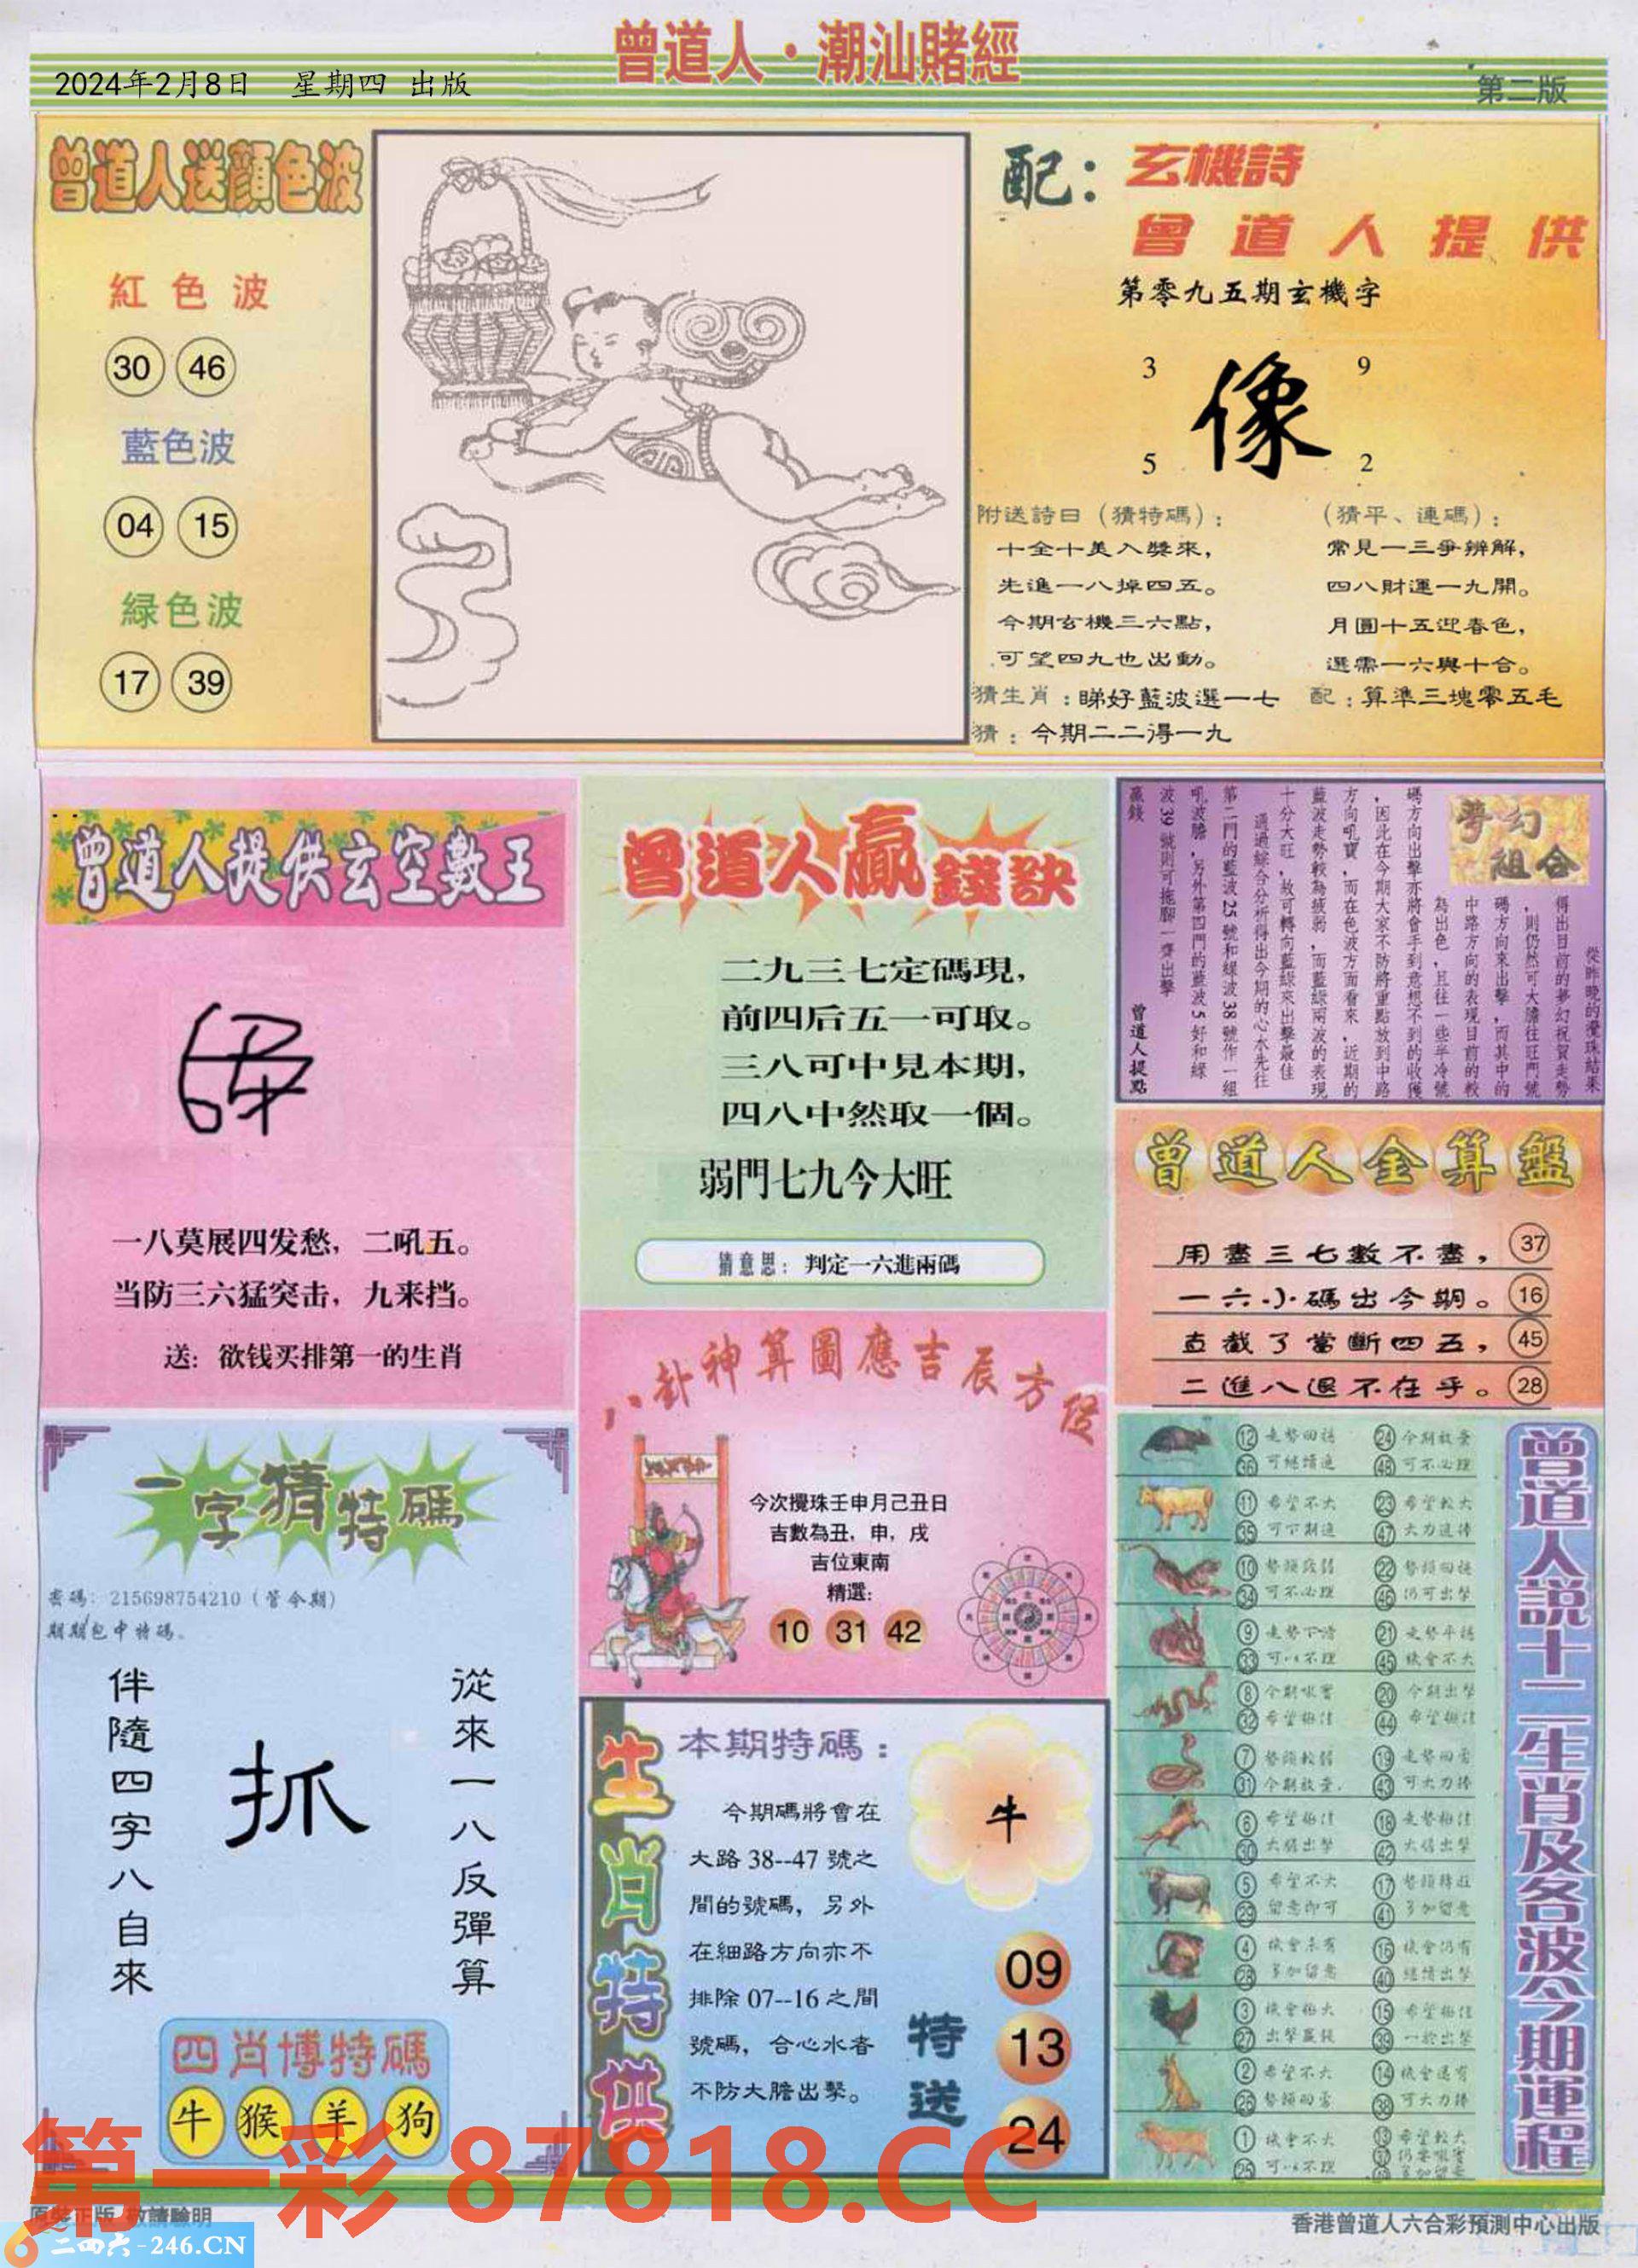 曾道人·潮汕賭經
2024年2月8日 星期四 出版
第二版
曾道人送顔色波
紅色波
30 46
藍色波
04 15
緑色波
17 39
配：玄機詩
曾道人提供
第零九五期玄機字
3 9
像
5 2
附送詩曰（猜特碼）：
十全十美入獎來，
先進一八掉四五。
今期玄機三六點，
可望四九也出動。
（猜平、連碼）：
常見一三爭辨解，
四八財運一九開。
月圓十五迎春色，
選需一六與十合。
猜生肖：睇好藍波選一七 配：算準三塊零五毛
猜：今期二二得一九
曾道人提供玄空數王
一八莫展四发愁，二吼五。
当防三六猛突击，九来挡。
送：欲钱买排第一的生肖
曾道人贏錢訣
二九三七定碼現，
前四后五一可取。
三八可中見本期，
四八中然取一個。
弱門七九今大旺
猜意思：判定一六進兩碼
夢幻組合
從昨晚的攪珠結果
得出目前的夢幻祝賀走勢
，則仍然可大膽往旺門號
碼方向來出擊，而其中的
中路方向的表現目前的較
為出色，且往一些半冷號
碼方向出擊亦將會手到意想不到的收獲
，因此在今期大家不防將重點放到中路
方向吼寶，而在色波方面看來，近期的
藍波走勢較為疲弱，而藍綠兩波的表現
十分大旺，故可轉向藍綠來出擊最佳
通過綜合分析得出今期的心水先往
第二門的藍波25號和綠波38號作一組
吼波膽，另外第四門的藍波5好和綠
波39號則可拖腳一齊出擊
贏錢 曾道人提點
曾道人金算盤
用盡三七數不盡， 37
一六小碼出今期。 16
直截了當斷四五， 45
二進八退不在乎。 28
八卦神算圖應吉辰方位
今次攪珠壬申月己丑日
吉數為丑，申，戌
吉位東南
精選：
10 31 42
一字猜特碼
密碼：215698754210（管今期）
期期包中特碼。
從來一八反彈算
抓
伴隨四字八自來
四肖博特碼
牛 猴 羊 狗
生肖特供
本期特碼：
今期碼將會在
大路38--47號之
間的號碼，另外
在細路方向亦不
排除07--16之間
號碼，合心水者
不防大膽出擊。
牛
特送
09
13
24
曾道人説十二生肖及各波今期運程
12 走勢回穩 24 今期放棄
36 可繼續進 48 可不必理
11 希望不大 23 希望較大
35 可下期進 47 大力追捧
10 勢頭改弱 22 勢頭回穩
34 可不必理 46 仍可出擊
9 走勢下滑 21 走勢平穩
33 可以不理 45 機會不大
8 今期吼寶 20 今期出擊
32 希望極佳 44 希望極佳
7 勢頭較弱 19 走勢回雷
31 今期放棄 43 可大力捧
6 希望極佳 18 走勢極佳
30 大膽出擊 42 大膽出擊
5 希望不大 17 勢頭轉旺
29 留意即可 41 多加留意
4 機會未有 16 機會仍有
28 多加留意 40 繼續出擊
3 機會極大 15 希望極佳
27 出擊贏錢 39 一於出擊
2 希望不大 14 機會還有
26 勢頭回雷 38 可大力捧
1 機會不大 13 希望較大
25 可以不理 37 仍要吼實
49 多加留意
第一彩 87818.CC
原裝正版 敬請驗明
二四六-246.CN
香港曾道人六合彩預測中心出版